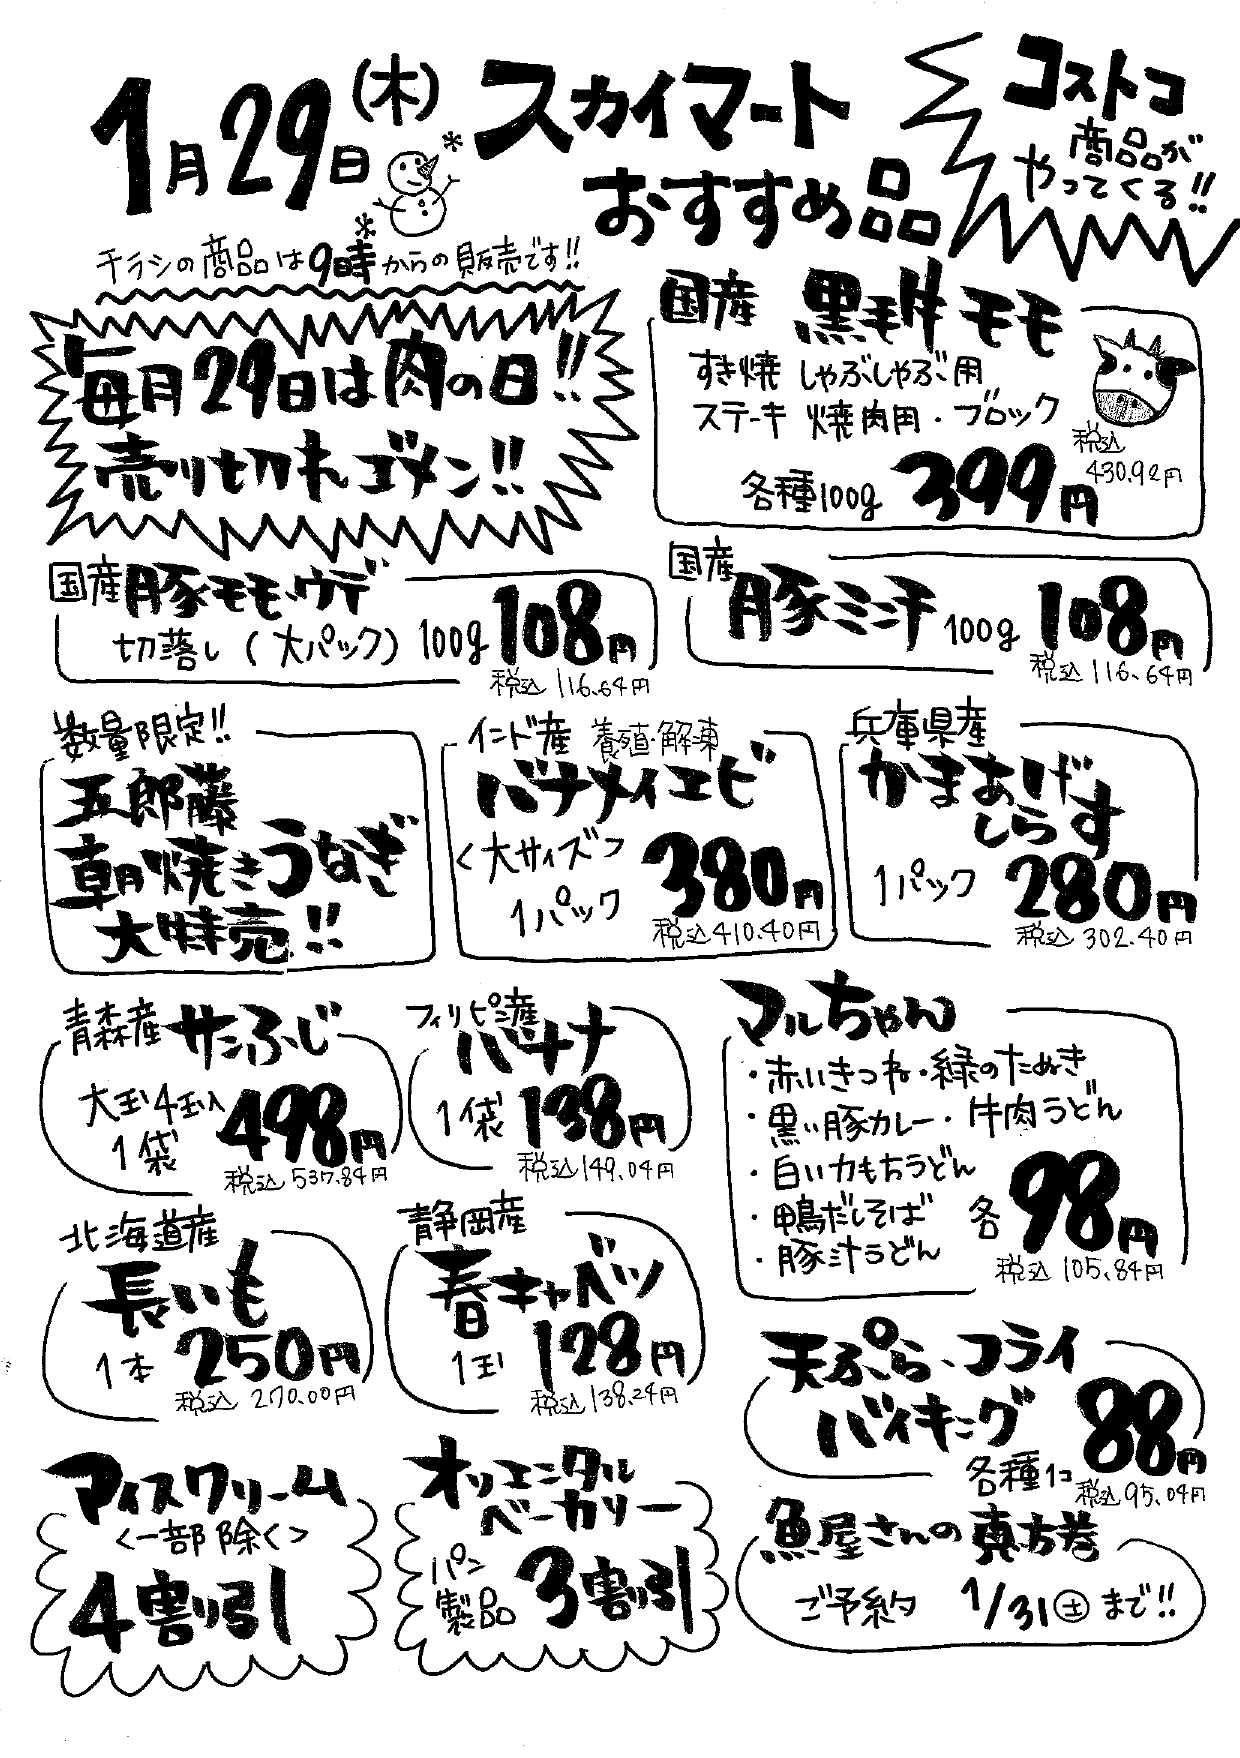 1月29日(木)
スカイマート
おすすめ品
コストコ
商品が
やってくる!!
チラシの商品は9時からの販売です!!
毎月29日は肉の日!!
売り切れゴメン!!
国産 黒毛牛モモ
すき焼 しゃぶしゃぶ用
ステーキ 焼肉用・ブロック
各種100g 399円
税込
430.92円
国産 豚モモ、ウデ
切落し (大パック) 100g 108円
税込 116.64円
国産 豚ミンチ 100g 108円
税込 116.64円
数量限定!!
五郎藤
朝焼きうなぎ
大特売!!
インド産 養殖・解凍
バナメイエビ
<大サイズ>
1パック 380円
税込 410.40円
兵庫県産
かまあげ
しらす
1パック 280円
税込 302.40円
青森産 サンふじ
大玉4玉入
1袋 498円
税込 537.84円
フィリピン産
バナナ
1袋 138円
税込 149.04円
マルちゃん
・赤いきつね・緑のたぬき
・黒い豚カレー・牛肉うどん
・白い力もちうどん
・鴨だしそば
・豚汁うどん
各 98円
税込 105.84円
北海道産
長いも
1本 250円
税込 270.00円
静岡産
春キャベツ
1玉 128円
税込 138.24円
天ぷら、フライ
バイキング
各種1コ 88円
税込 95.04円
アイスクリーム
<一部除く>
4割引
オリエンタル
ベーカリー
パン
製品 3割引
魚屋さんの恵方巻
ご予約 1/31(土)まで!!